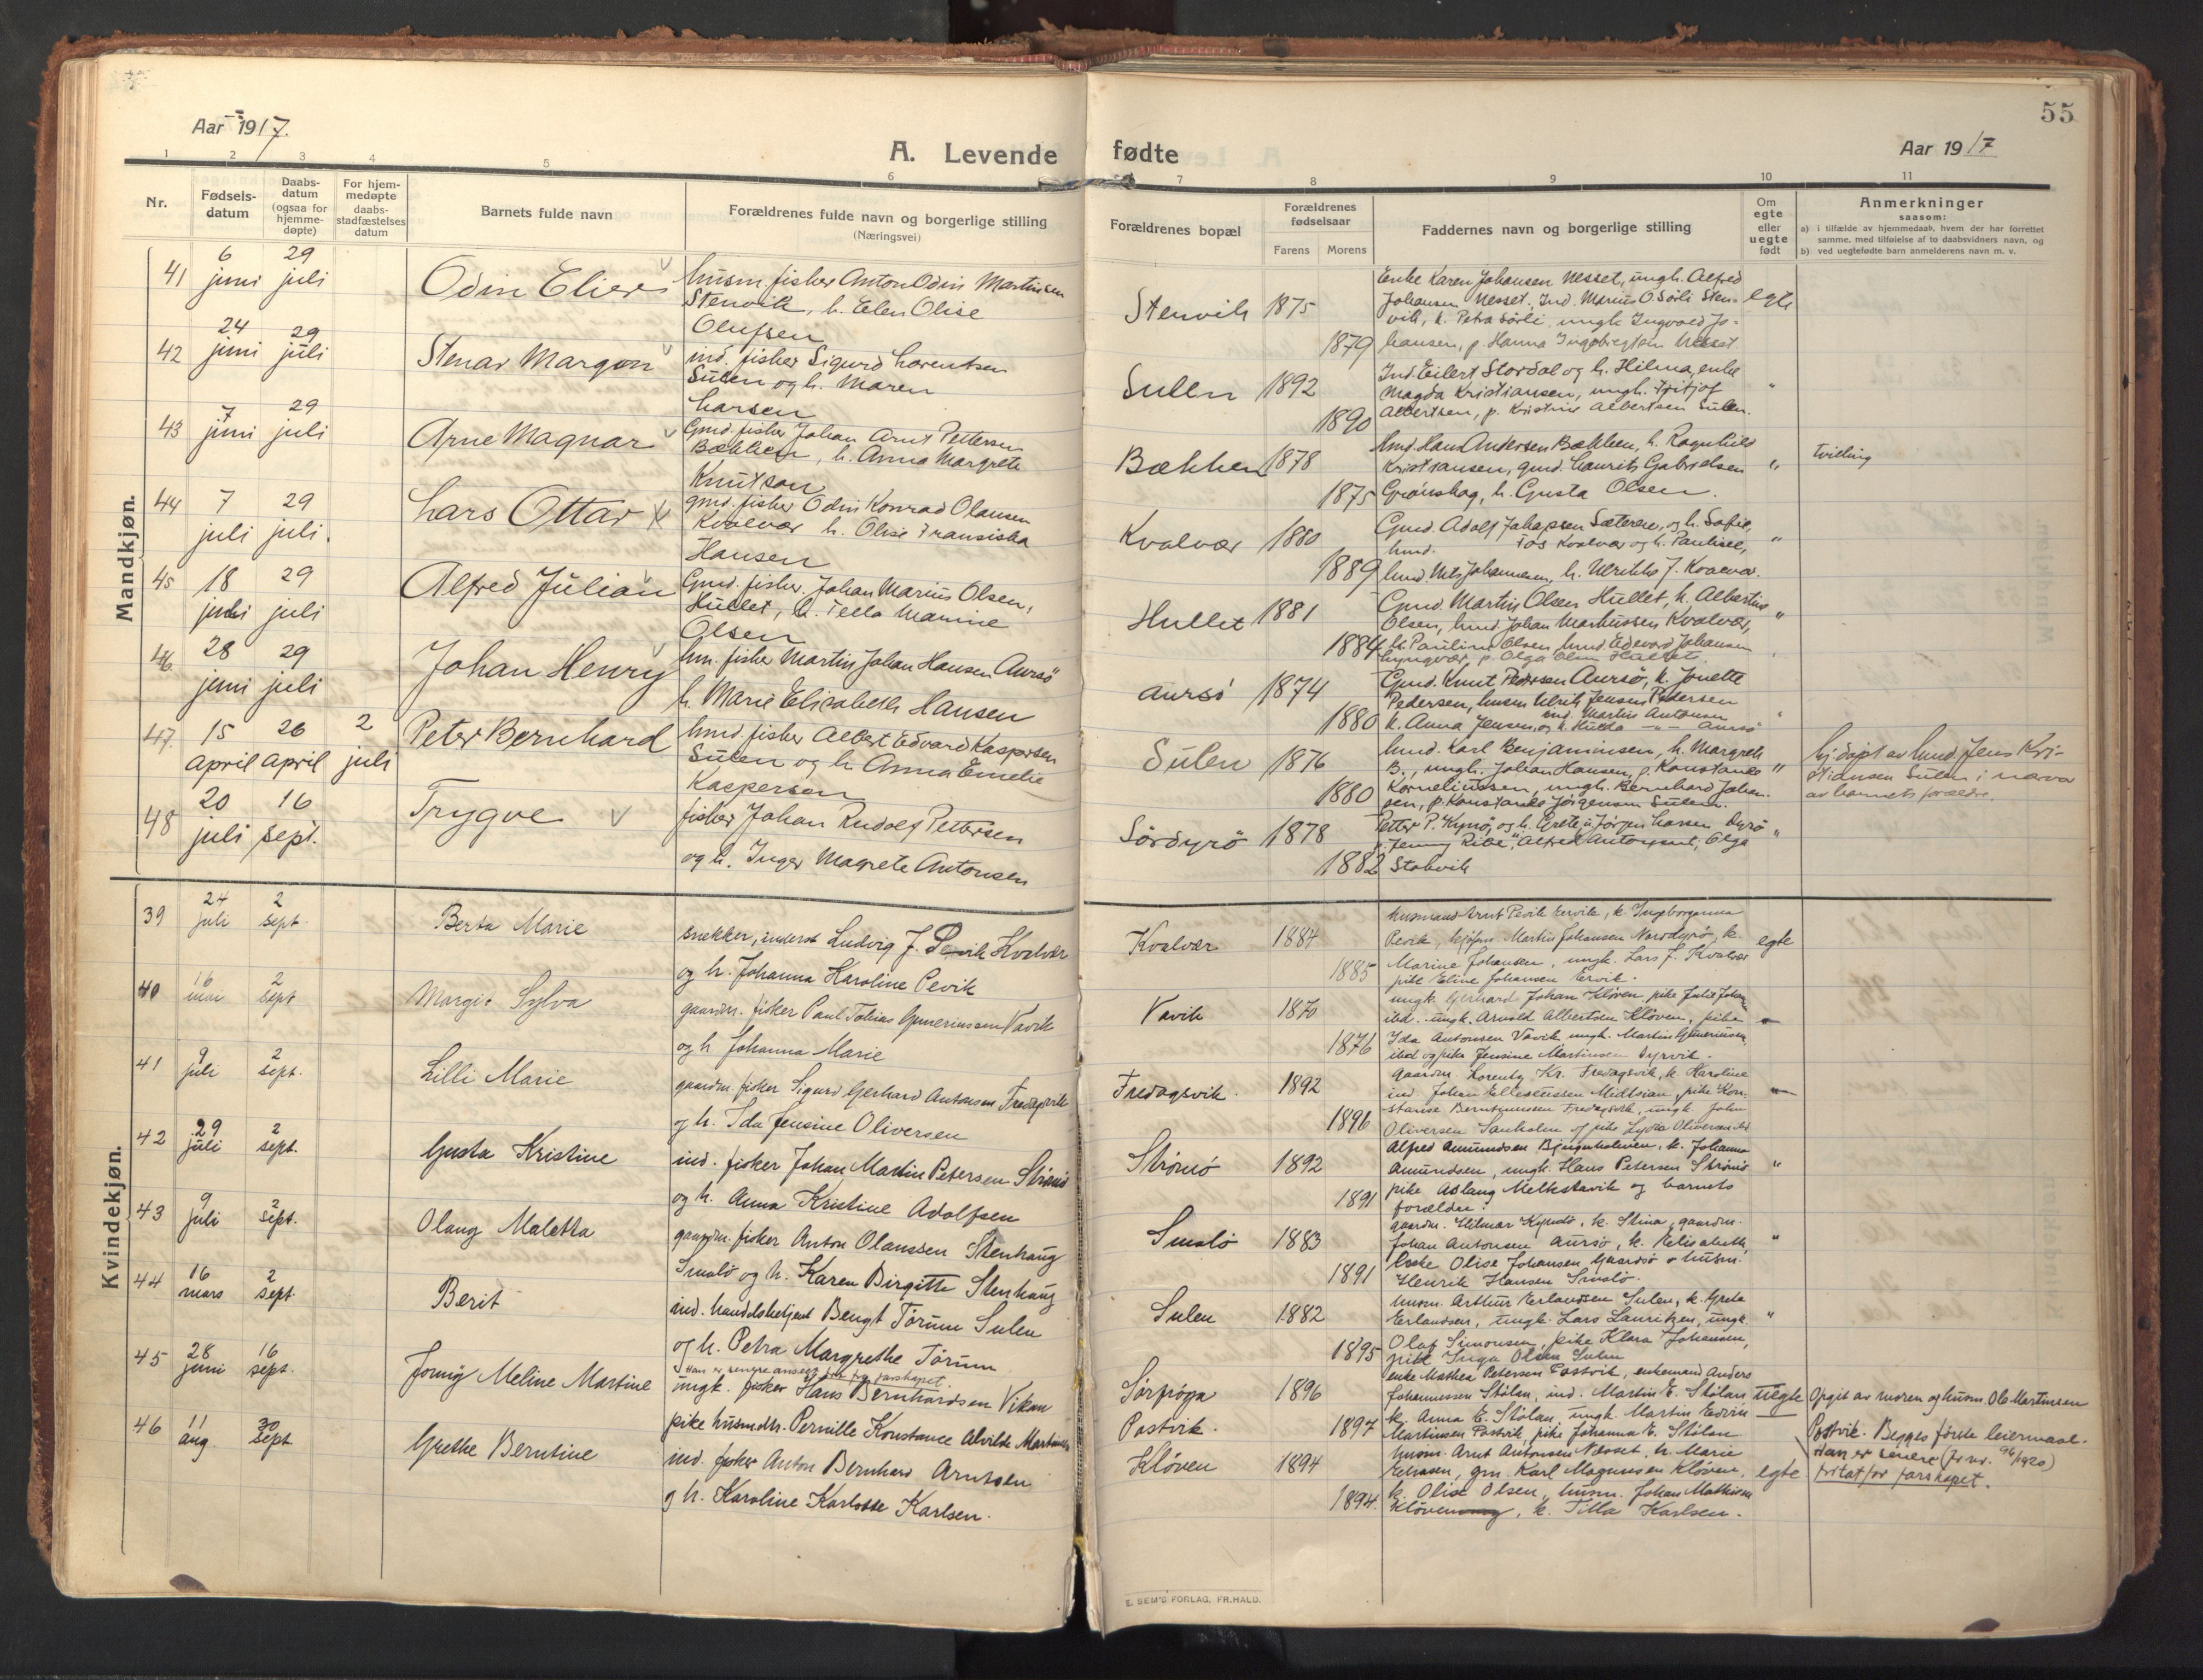 55
Aar 1917.
A. Levende fødte
Aar 1917
1 2 3 4 5 6 7 8 9 10 11
Nr.
Fødsels-
datum
Daabs-
datum
(ogsaa for
hjemme-
døpte)
For hjem-
medøpte
daabs-
stadfæstelses
datum
Barnets fulde navn
Forældrenes fulde navn og borgerlige stilling
(Næringsvei)
Forældrenes bopæl
Forældrenes
fødselsaar
Farens Morens
Faddernes navn og borgerlige stilling
Om
egte
eller
uegte
født
Anmerkninger
saasom:
a) i tilfælde av hjemmedaab, hvem der har forrettet
samme, med tilføielse af to daabsvidners navn, og
b) ved uegtefødte barn anmelderens navn m. v.
Mandkjøn.
41 6 juni 29 juli
husm. fisker Anton Odin Martinsen
Stenvik, h. Elen Olise
Olufsen
Stenvik 1875
1879
Enke Karen Johansen Nesset, ungk. Alfred
Johansen Nesset, Ind. Marius O Sörli Sten-
vik, k. Petra Sörli, ungk Ingvald Jo-
hansen, p. Hanna Ingebrigtsen Nesset
egte
42 24 juni 29 juli
Stenar Margon
ind. fisker Sigurd Lorentsen
Sulen og h. Maren
Larsen
Sulen 1892
1890
Ind. Eilert Stordal og h. Hilma, enke
Magda Kristiansen, ungk. Fritjof
Albertsen, p. Kristine Albertsen Sulen.
"
43 7 juni 29 juli
Arne Magnar
Gmd. fisker Johan Arnt Pettersen
Bækken, h. Anna Margrete
Knutson
Bækken 1878
1875
hmd. Hans Andersen Bækken, h. Ragnhild
Kristiansen, gmd. Laurits Gabrielsen
Grönskag, h. Gusta Olsen.
"
tvilling
44 7 juli 29 juli.
Lars Ottar
gmd. fisker Odin Konrad Olausen
Kvalvær h. Olise Fransiska
Hansen
Kvalvær 1880
1889
Gmd. Adolf Johansen Sæteren, og h. Sofie,
hmd. Kvalvær og h. Pauline,
hmd. Nils Johannesen, h. Ulrikke J. Kvalvær.
"
45 18 juli 29 juli
Alfred Julian
Gmd. fisker Johan Marius Olsen,
Hullet, h. Tella Marine
Olsen
Hullet 1881
1884
Gmd. Martin Olsen Hullet, h. Albertine
Olsen, hmd. Johan Markussen Kvalvær,
h. Pauline Olsen, hmd. Edevard Johansen
Lyngvær, p. Olga Olsen Hullet.
"
46 28 juni 29 juli
Johan Henry
hm. fisker Martin Johan Hansen Aursö
h. Marie Elisabeth Hansen
Aursö 1874
1880
Gmd. Knut Pedersen Aursö, k. Jonette
Pedersen, husm Ulrik Jensen Pedersen
k. Anna Jensen, og h. Hulda Aursö
ind. Martin Antonsen
47 15 april 26 april 2 juli
Peter Bernhard
hmd. fisker Albert Edvard Kaspersen
Sulen og h. Anna Emelie
Kaspersen
Sulen 1876
1880
hmd. Karl Benjaminsen, h. Margrete
B., ungk. Johan Hansen, p. Konstanse
Korneliussen, ungk. Bernhard Johan-
sen, p. Konstanse Jörgensen Sulen.
"
hj. döpt av hmd. Jens Kri-
stiansen Sulen i nærvær
av barnets forældre
48 20 juli 16 sept.
Trygve
fisker Johan Rudolf Pettersen
og h. Inger Magrete Antonsen
Sördyrö 1878
1882
Petter P. Kynö, og h. Grete, Jörgen Larsen Dyrö
Jenny Ribe, Alfred Antonsen, Olga
Stokvik
"
Kvindekjøn.
39 24 juli 2 sept.
Berta Marie
snekker, inderst Ludvig J. Pevik Kvalvær
og h. Johanna Karoline Pevik
Kvalvær 1884
1885
husmand Arnt Pevik Ervik, k. Ingeborganna
Pevik, kjøpm. Martin Johansen Norddyrö, k.
Marine Johansen, ungk. Lars J. Kvalvær
pike Eline Johansen Ervik.
egte
40 16 mai 2 sept
Margit Sylva
gaardm. fisker Paul Tobias Gunerinssen Vavik
og h. Johanna Marie
Vavik 1870
1876
ungk. Gerhard Johan Kløven, pike Julie Johan
ibd. ungk. Arnold Albertsen Kløven, pike
Ida Antonsen Vavik ungk. Martin Guneriussen
ibd og pike Jensine Martinsen Dyrvik.
41 9 juli 2 sept.
Lilli Marie
gaardm. fisker Sigurd Gerhard Antonsen Fredagsvik
og h. Ida Jensine Oliversen
Fredagsvik. 1892
1896
gaardm. Lorentz Kr. Fredagsvik, k Karoline
ind. Johan Ellestussen Midtsian, pike Kon-
stanse Berntsinussen Fredagsvik, ungk. John
Oliversen Sanholm og pike Lydia Oliversen ibd
42 29 juli 2 sept.
Gusta Kristine
ind. fisker Johan Martin Petersen Strömö
og h. Anna Kristine Adolfsen
Strömö 1892
1891
Alfred Amundsen Bjengnholmen, k. Johanna
Amundsen, ungk. Hans Petersen Strömö
pike Aslaug Melkstavik og barnets
forældre.
"
43 9 juli 2 sept.
Olaug Maletta
gaardm. fisker Anton Olaussen Stenhaug
Smslö og h. Karen Birgitte Stenhaug
Smslö 1883
1891
gaardm. Hilmar Kynsö, k. Stina, gaardm.
Johan Antonsen Aursö, k. Elisabeth
Enke Olise Johansen Gaasö o husm.
Henrik Hansen Smslö.
"
44 16 mars 2 sept.
Berit
ind. handelsbetjent Bengt Törum Sulen
og h. Petra Margrethe Törum
Sulen 1882
1895
husm. Arthur Erlandsen Sulen, k. Grete
Erlandsen, ungk. Lars Lauritzen, ungk
Olaf Simonsen, pike Klara Johansen,
pike Inga Olsen Sulen
"
45 28 juni 16 sept.
Jonny Meline Martine
Han er senere for farskapet.
ungk. fisker Hans Bernhardsen Vikan
pike husmdtr. Pernille Konstance Alvilde Martinsen
Sörfröya 1896
Postvik. 1897
enke Mathea Petersen Postvik, enkemand Anders
Johannessen Stölan, ind. Martin E. Stölan
k. Anna E. Stölan, ungk. Martin Edvin
Martinsen Postvik pike Johanna E. Stölan
uegte
Opgit av moren og husm. Ole Martinsen
Postvik. Begges første leiermaal.
Han er senere (fr nr. 96/1920)
fritat for farskapet.
46 11 aug. 30 sept
Grethe Berntine
ind. fisker Anton Bernhard Arntsen
og h. Karoline Karlotte Karlsen.
Klöven 1894
1894.
husm. Arnt Antonsen Nesset, k. Marie
gm. Karl Magnussen Klöven,
k. Olise Olsen, husm. Johan Mathisen
Klöven, k. Tilla Karlsen.
egte
E. SEM'S FORLAG, FR.HALD.